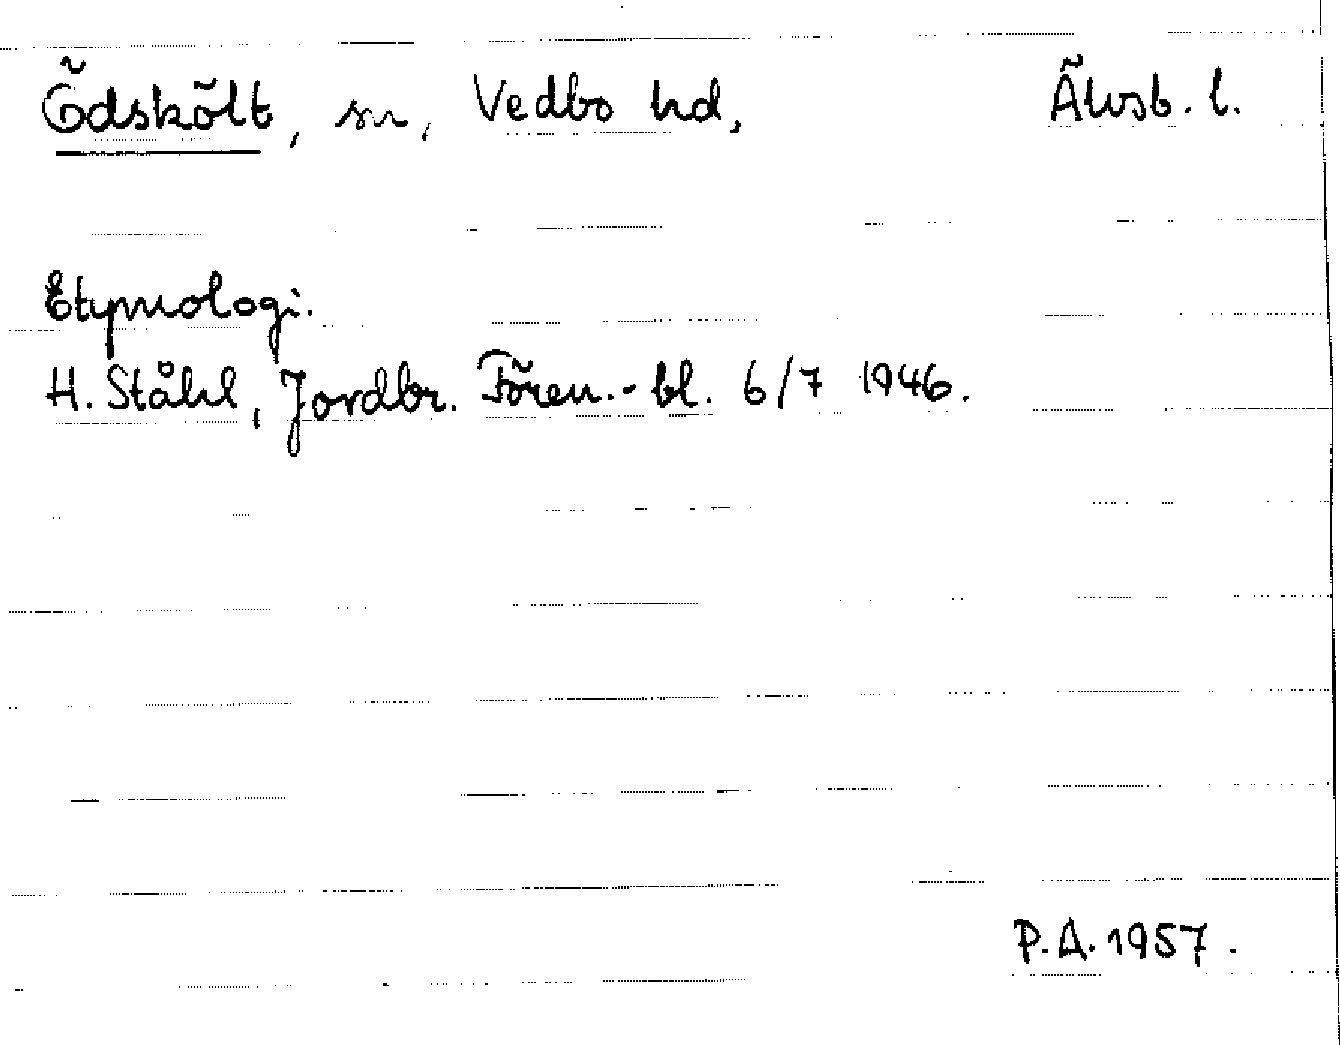 Ödskölt, sn, Vedbo hd, Älvsb. l.
Etymologi.
H. Ståhl, Jordbr. Fören.-bl. 6/7 1946.
P.A. 1957.